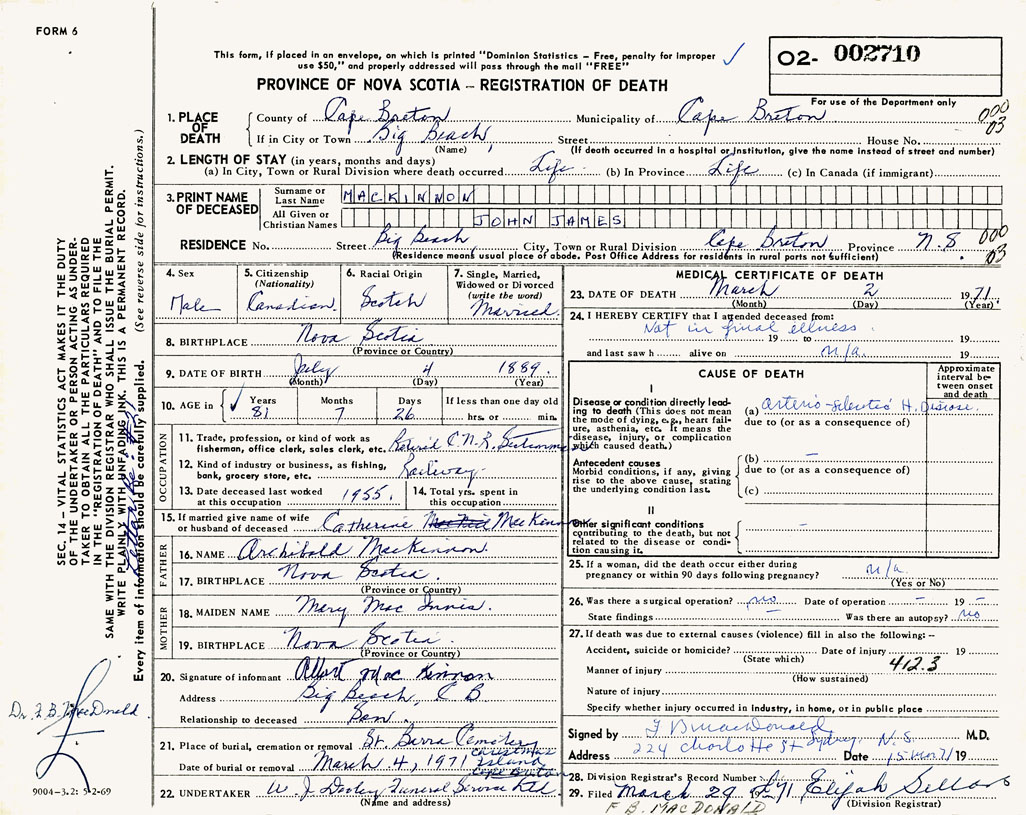 FORM 6
This form, if placed in an envelope, on which is printed "Dominion Statistics – Free, penalty for improper
use $50," and properly addressed will pass through the mail "FREE"
02- 002710
PROVINCE OF NOVA SCOTIA – REGISTRATION OF DEATH
For use of the Department only
000
03
1. PLACE OF DEATH
County of Cape Breton Municipality of Cape Breton
If in City or Town Big Beach, Street House No.
(Name) (If death occurred in a hospital or institution, give the name instead of street and number)
2. LENGTH OF STAY (in years, months and days)
(a) In City, Town or Rural Division where death occurred Life (b) In Province Life (c) In Canada (if immigrant)
3. PRINT NAME OF DECEASED
Surname or Last Name MACKINNON
All Given or Christian Names JOHN JAMES
RESIDENCE No. Street Big Beach, City, Town or Rural Division Cape Breton Province N.S 000
03
(Residence means usual place of abode. Post Office Address for residents in rural parts not sufficient)
4. Sex
Male
5. Citizenship
(Nationality)
Canadian
6. Racial Origin
Scotch
7. Single, Married,
Widowed or Divorced
(write the word)
Married
8. BIRTHPLACE Nova Scotia
(Province or Country)
9. DATE OF BIRTH July 4 1889
(Month) (Day) (Year)
10. AGE in Years Months Days If less than one day old
81 7 26 hrs. or min.
OCCUPATION
11. Trade, profession, or kind of work as
fisherman, office clerk, sales clerk, etc. Retired C.N.R.
12. Kind of industry or business, as fishing,
bank, grocery store, etc. Railway
13. Date deceased last worked
at this occupation 1955.
14. Total yrs. spent in
this occupation
15. If married give name of wife
or husband of deceased Catherine MacKinnon
FATHER
16. NAME Archibald MacKinnon
17. BIRTHPLACE Nova Scotia
(Province or Country)
MOTHER
18. MAIDEN NAME Mary Mac Innis.
19. BIRTHPLACE Nova Scotia
(Province or Country)
20. Signature of informant Albert Mac Kinnon
Address Big Beach, C B
Relationship to deceased Son.
21. Place of burial, cremation or removal St. Barra Cemetery
Christmas
Island
Cape Breton
Date of burial or removal March 4, 1971
22. UNDERTAKER W. J. Dooley Funeral Service Ltd.
(Name and address)
MEDICAL CERTIFICATE OF DEATH
23. DATE OF DEATH March 2 1971
(Month) (Day) (Year)
24. I HEREBY CERTIFY that I attended deceased from:
Not in final illness
19 to 19
and last saw h alive on n/a. 19
CAUSE OF DEATH
Approximate
interval be-
tween onset
and death
I
Disease or condition directly lead-
ing to death (This does not mean
the mode of dying, e.g., heart fail-
ure, asthenia, etc. It means the
disease, injury, or complication
which caused death.)
(a) Arterio-sclerotic H. Disease.
due to (or as a consequence of)
Antecedent causes
Morbid conditions, if any, giving
rise to the above cause, stating
the underlying condition last.
(b) –
due to (or as a consequence of)
(c)
II
Other significant conditions
contributing to the death, but not
related to the disease or condi-
tion causing it.
–
25. If a woman, did the death occur either during
pregnancy or within 90 days following pregnancy? n/a.
(Yes or No)
26. Was there a surgical operation? no Date of operation – 19 –
State findings – Was there an autopsy? no
27. If death was due to external causes (violence) fill in also the following:--
Accident, suicide or homicide? Date of injury 19
(State which)
412.3
Manner of injury
(How sustained)
Nature of injury
Specify whether injury occurred in industry, in home, or in public place
Signed by F B MacDonald M.D.
Address 224 Charlotte St Sydney, N.S. Date 15 Mar 71 19
28. Division Registrar's Record Number
29. Filed March 29 1971 Elijah
(Division Registrar)
F B. MACDONALD
SEC. 14 – VITAL STATISTICS ACT MAKES IT THE DUTY
OF THE UNDERTAKER OR PERSON ACTING AS UNDER-
TAKER TO OBTAIN ALL THE PARTICULARS REQUIRED
IN THE "REGISTRATION OF DEATH" AND TO FILE THE
SAME WITH THE DIVISION REGISTRAR WHO SHALL ISSUE THE BURIAL PERMIT.
WRITE PLAINLY WITH UNFADING INK. THIS IS A PERMANENT RECORD.
Every item of information should be carefully supplied. (See reverse side for instructions.)
Dr. F. B. MacDonald
9004-3.2: 5-2-69